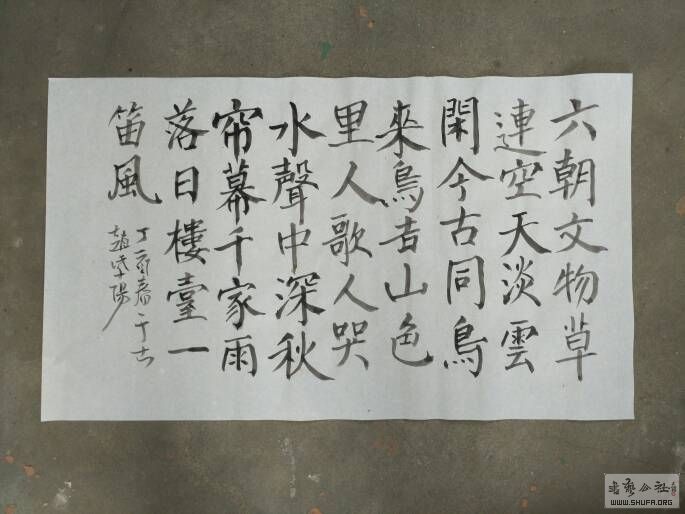 六朝文物草
連空天淡雲
閑今古同鳥
來鳥去山色
里人歌人哭
水聲中深秋
帘幕千家雨
落日樓臺一
笛風
丁酉春于
書藝公社
WWW.SHUFA.ORG